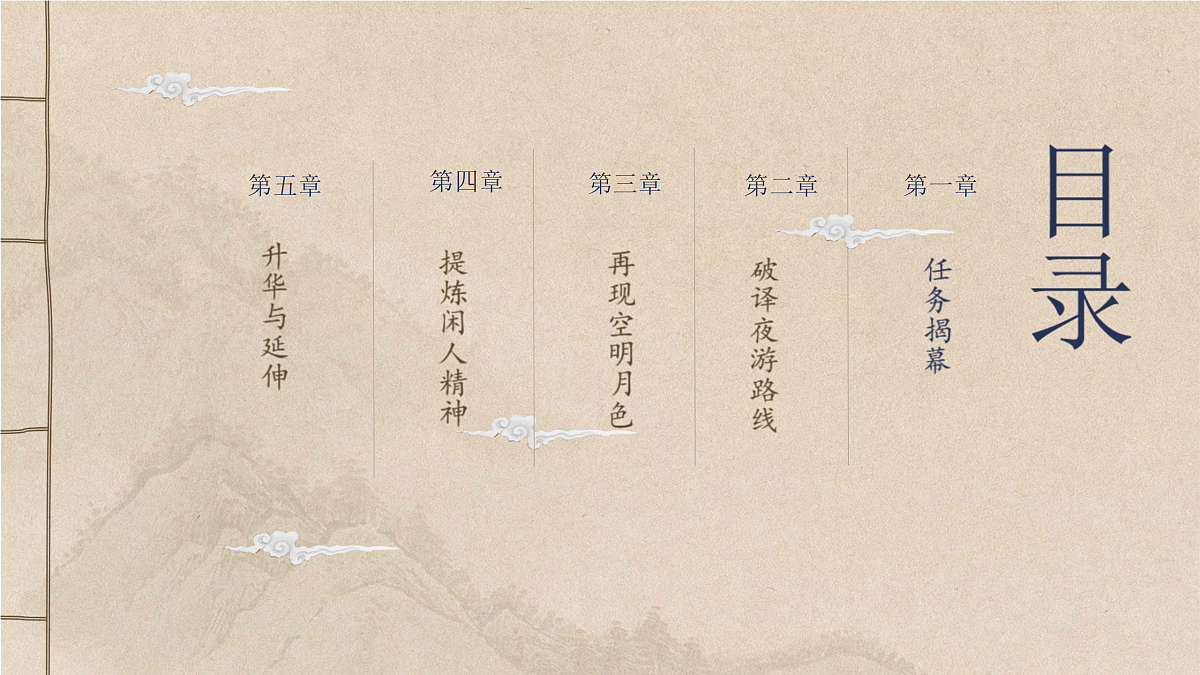 目录
第一章
任务揭幕
第二章
破译夜游路线
第三章
再现空明月色
第四章
提炼闲人精神
第五章
升华与延伸